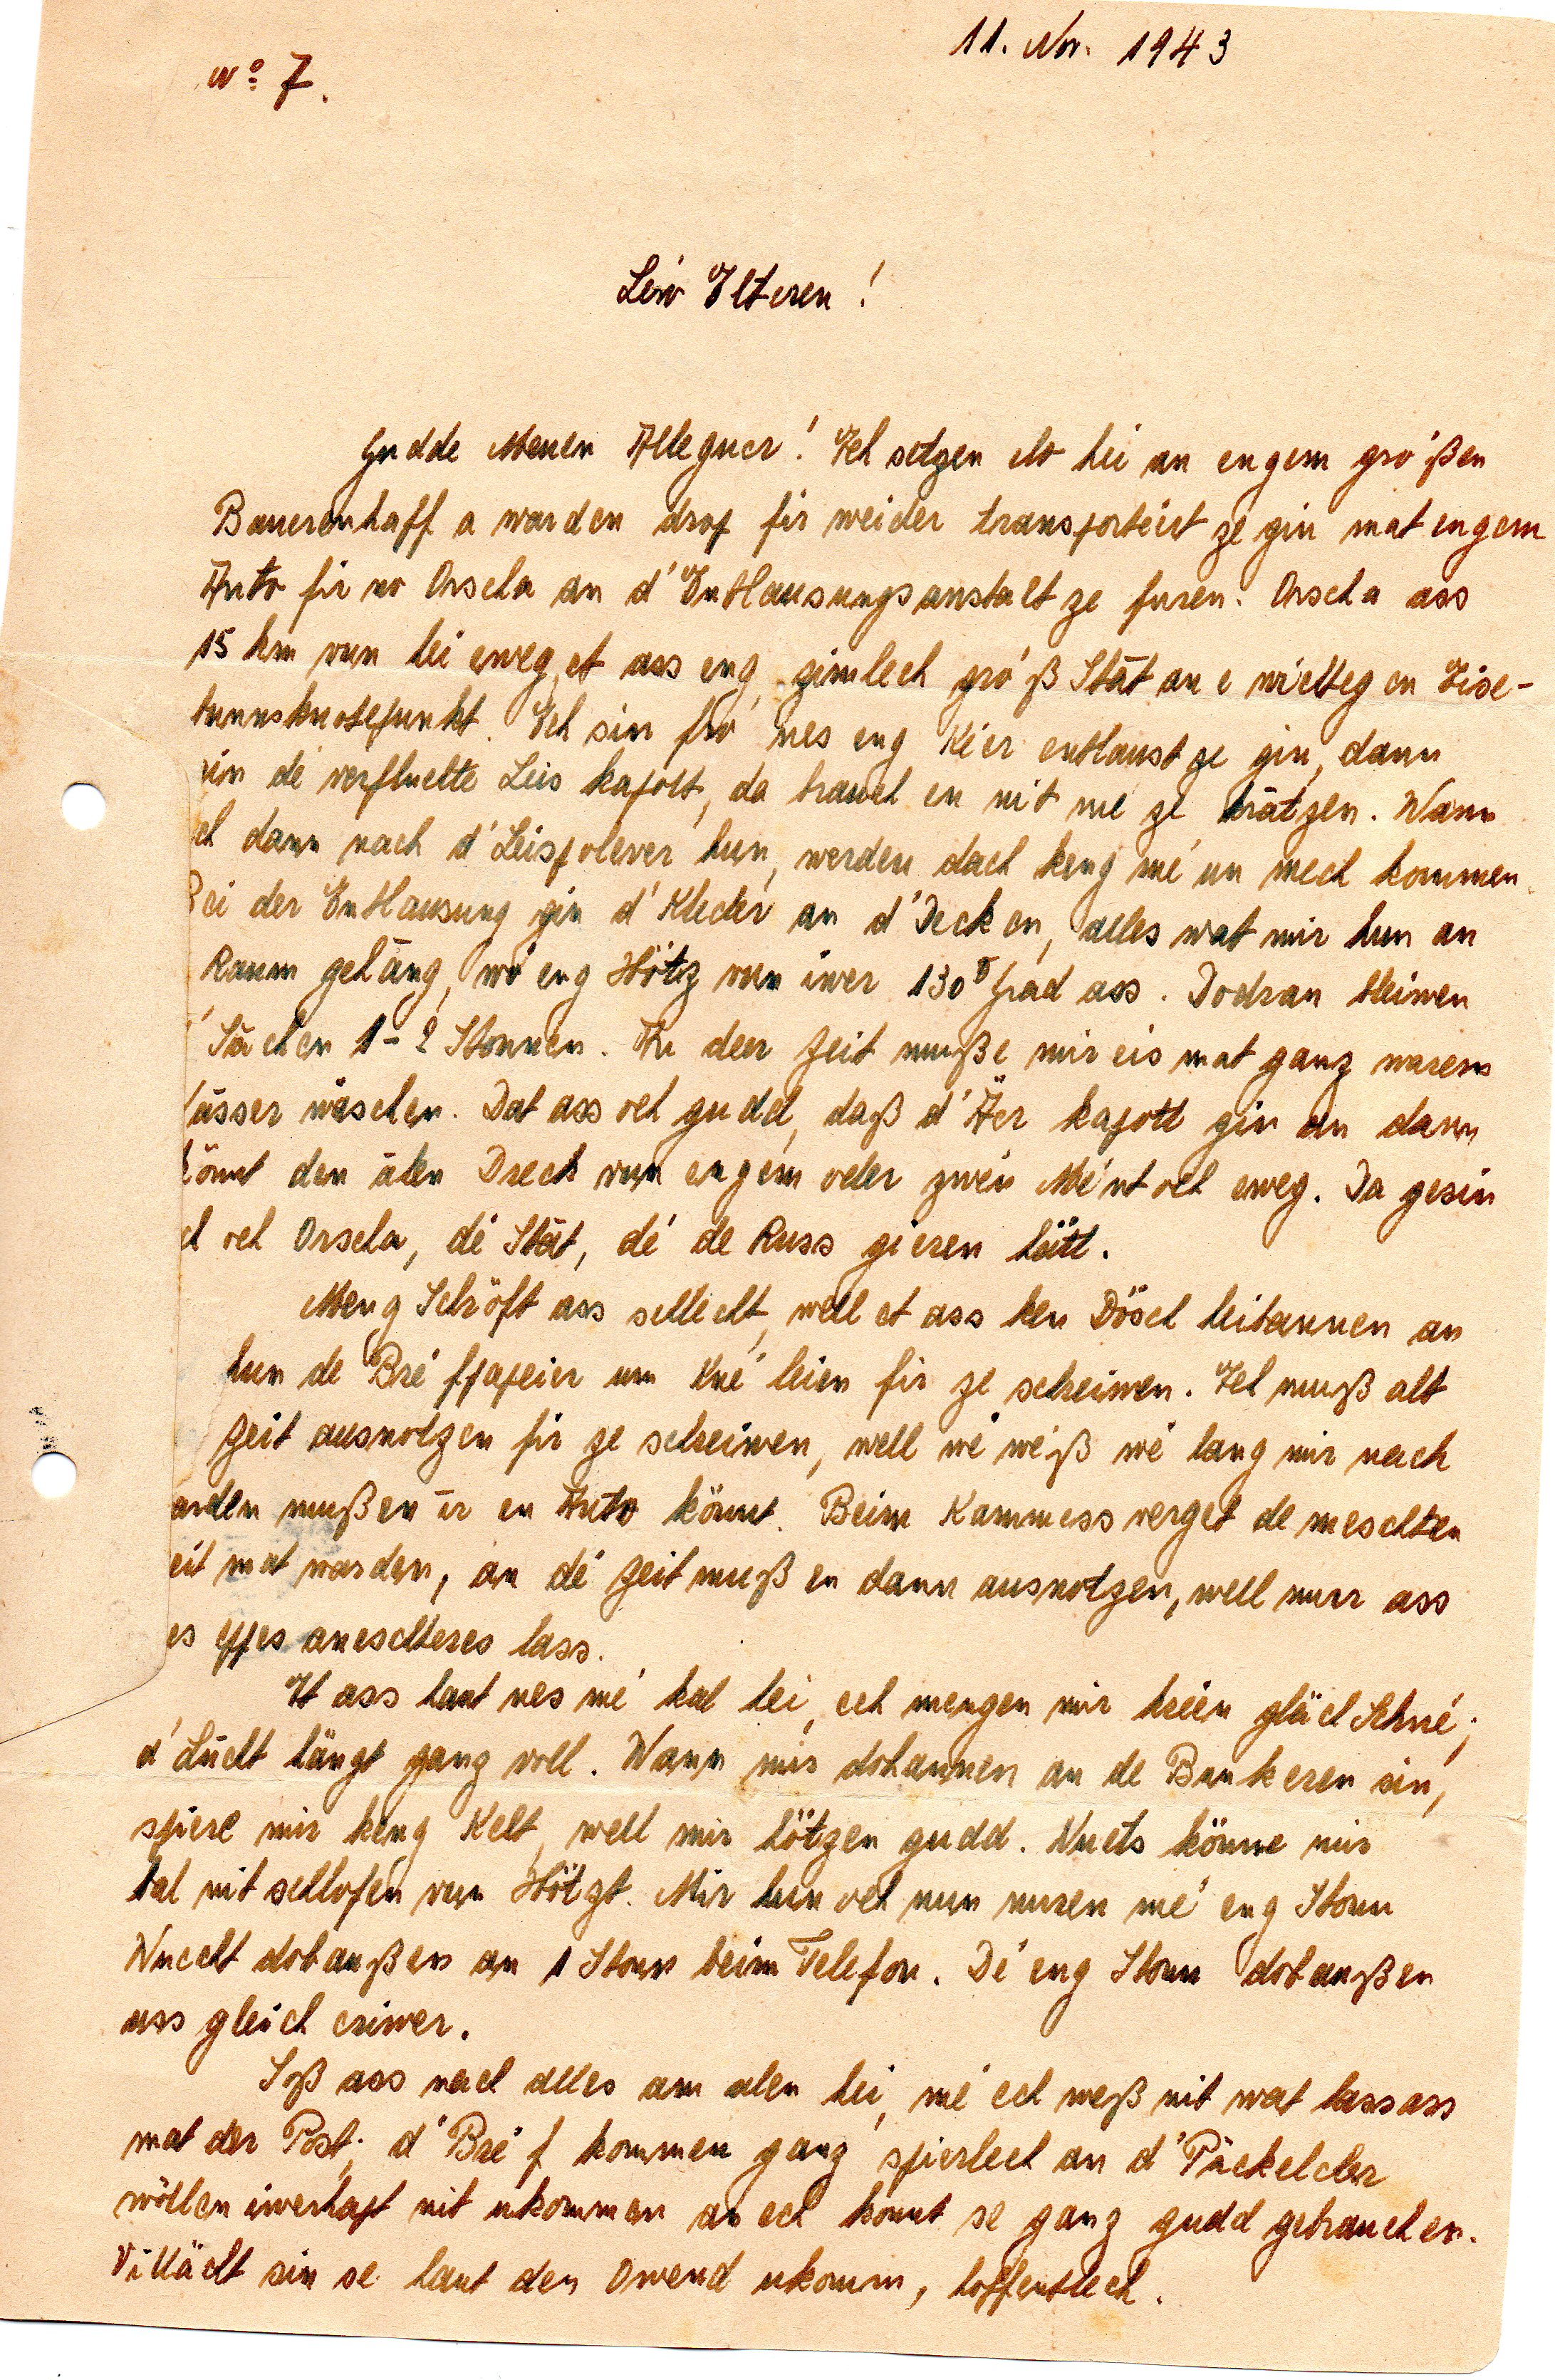 11. Nov. 1943
No 7.
Léiv Elteren!
Gudde Menen Alleguer! Ech setzen elo hei an engem gro'ßen
Bauerenhaff a warden drop fir weider transportéiert ze gin mat engem
Auto fir no Orscha an d'Entlausungsanstalt ze furen. Orscha ass
15 km vun hei eweg, et ass eng zimlech gro'ß Stât an e wichtegen Eise-
bunnsknotepunkt. Ech sin fro' nes eng Ke'er entlaust ze gin, dann
sin de' verfluchte Leis kapott, da brauch en nit me' ze krâtzen. Wann
ech dann nach d'Leispolever hun, werden dach keng me' un mech kommen.
Bei der Entlausung gin d'Kleder an d'Decken, alles wat mir hun an
Raum gehâng, wo' eng Hötz vun iwer 130° Grad ass. Dodran bleiwen
d'Sâchen 1-2 Stonnen. An deer Zeit muße mir eis mat ganz warem
Wâsser wäschen. Dat ass och gudd, daß d'Äer kapott gin an dann
könnt den âlen Dreck vun engem oder zwe'n Me'nt och eweg. Da gesin
ech och Orscha, de' Stât, de' de Russ gieren hätt.
Meng Schröft ass schlecht, well et ass ken Dösch heibannen an
hun de Bre'fpapeier um Kne' leien fir ze schreiwen. Ech muß all
Zeit ausnotzen fir ze schreiwen, well we' we'ß we' lang mir nach
warden mußen ir en Auto könnt. Beim Kammess verget de meschten
Zeit mat warden, an de' Zeit muß en dann ausnotzen, well murr ass
es eppes aneschteres lass.
Et ass haut nes me' kal hei, ech mengen mir kréien gläich Schne';
d'Lucht hängt ganz voll. Wann mir dobannen an de Bunkeren sin,
spiere mir keng Kelt, well mir hötzen gudd. Nuets könne mir
bal nit schlofen vun Hötzt. Mir hun och nun nuren me' eng Stonn
Wuecht dobaußen an 1 Stonn beim Telefon. De' eng Stonn dobaußen
ass gleich eriwer.
Soß ass nach alles am alen hei, me' ech weß nit wat lass ass
mat der Post; d'Bre'f kommen ganz spierlech an d'Päckelcher
wöllen iwerhapt nit ukommen an ech könnt se ganz gudd gebrauchen.
Villächt sin se haut den Owend ukomm, hoffentlech.